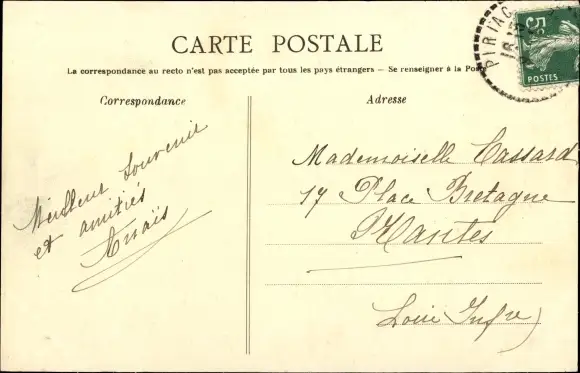 CARTE POSTALE
La correspondance au recto n'est pas acceptée par tous les pays étrangers — Se renseigner à la Poste
Correspondance
Adresse
PIRIAC
5c
POSTES
Meilleur souvenir
et amitiés
Anaïs
Mademoiselle Cassard
17 Place Bretagne
Nantes
Loire Infre)